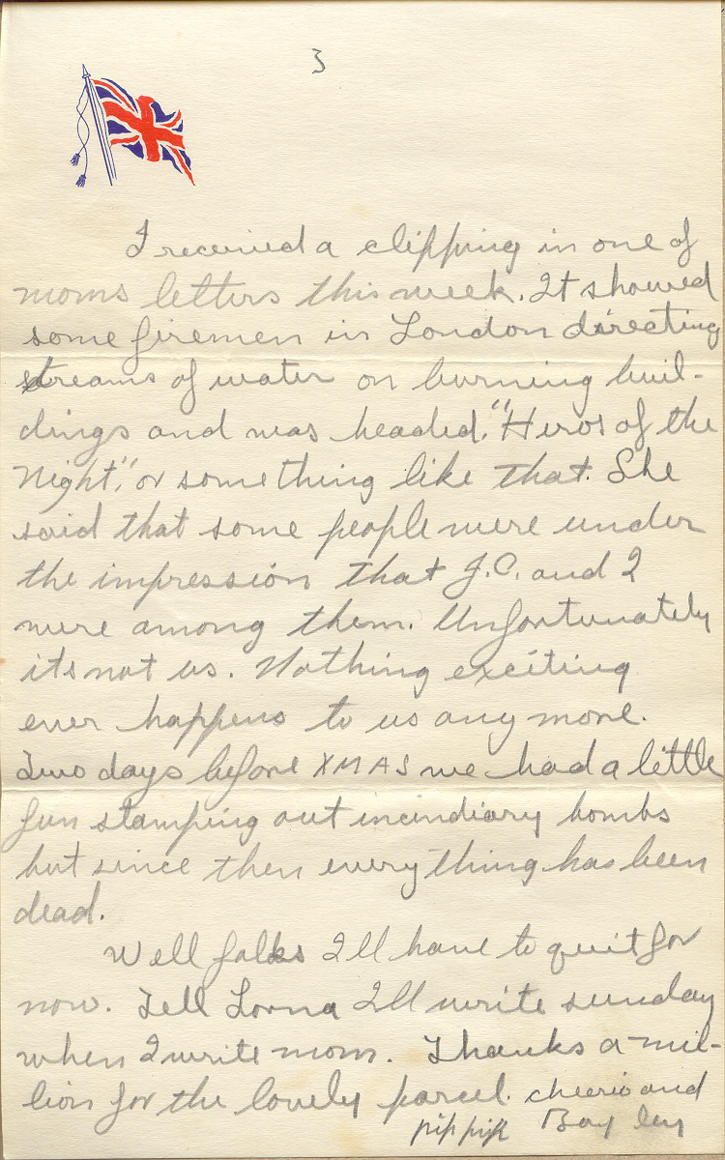 3
I received a clipping in one of
moms letters this week. It showed
some firemen in London directing
streams of water on burning buil-
dings and was headed, "Heros of the
Night", or something like that. She
said that some people were under
the impression that J.C. and I
were among them. Unfortunately
its not us. Nothing exciting
ever happens to us any more.
Two days before XMAS we had a little
fun stamping out incindiary bombs
but since then every thing has been
dead.
Well folks I'll have to quit for
now. Tell Lorna I'll write sunday
when I write mom. Thanks a mil-
lion for the lovely parcel. cheerio and
pip pip